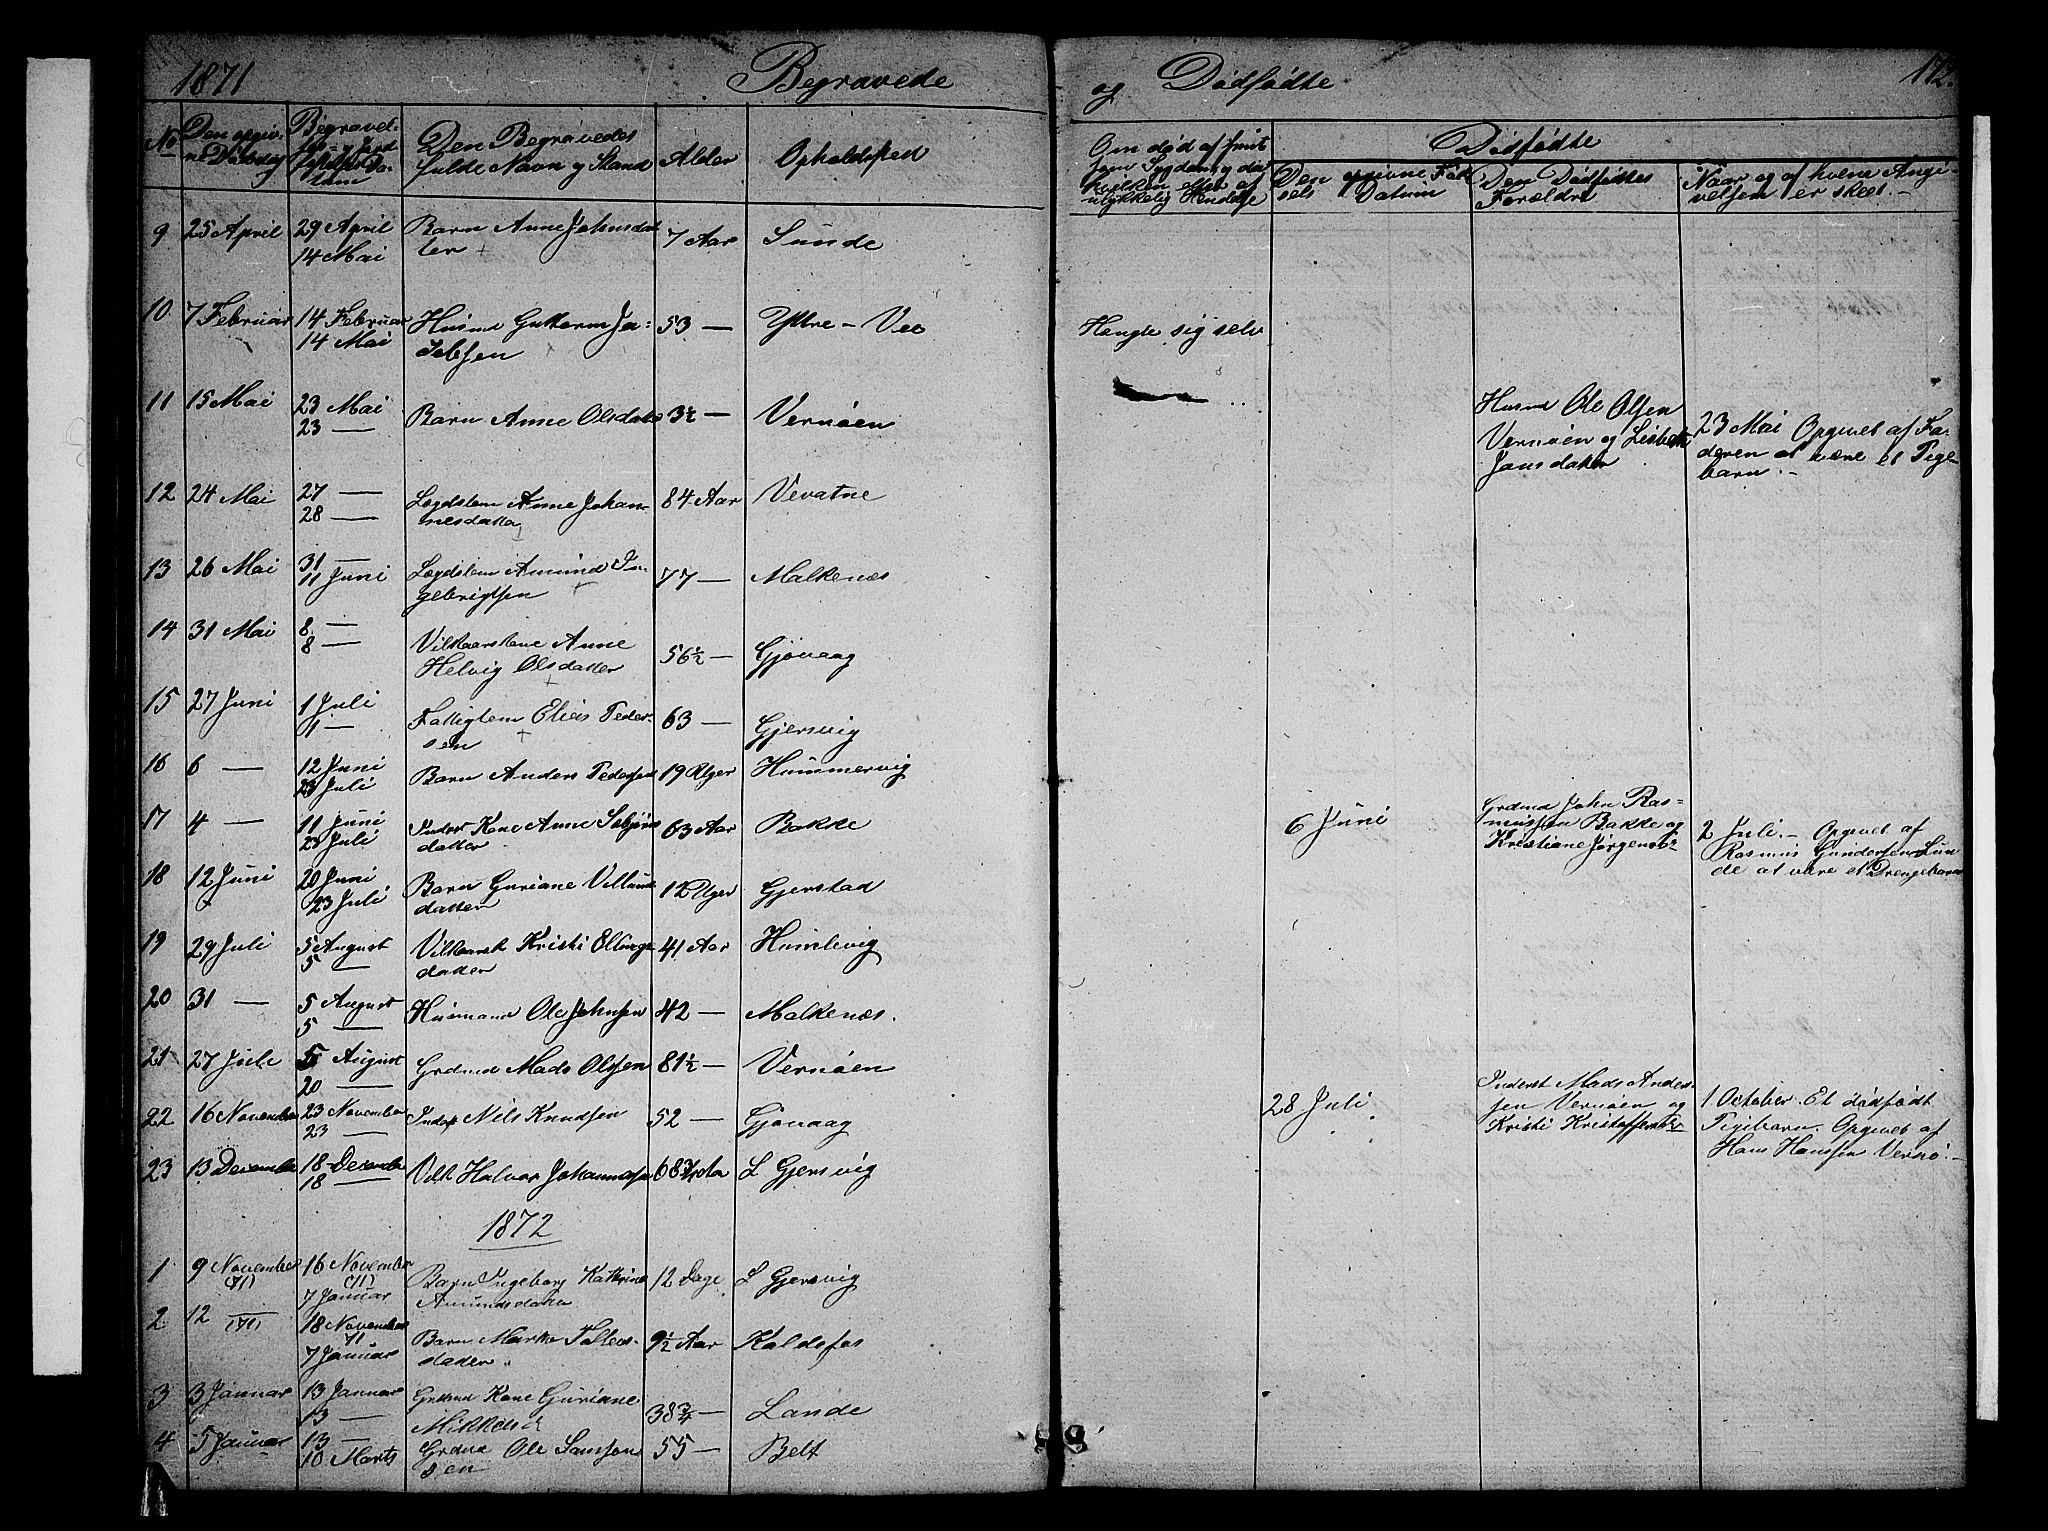 1871 Begravede
No Den opgiv- Begravel- Den Begravedes Alder Opholdsted
ne Dødsdag fulde Navn og Stand
9 25 April 29 April Barn Anne Johnsdat 7 Aar Sunde
14 Mai ter
10 7 Februar 14 Februar Husmd Guttorm Ja- 53 — Yttre-Vee
14 Mai
11 15 Mai 23 Mai Barn Anne Olsdatr 3½ — Vernøen
23 —
12 24 Mai 27 — Lægdslem Anne Johan- 84 Aar Vevatne
28 — nesdatter
13 26 Mai 31 — Lægdslem Amund In- 77 — Malkenæs
11 Juni gebrigtsen
14 31 Mai 8 — Vilkaarskone Anne 56½ — Gjøvaag
8 — Helvig Olsdatter
15 27 Juni 1 Juli Fattiglem Elias Peder- 63 — Gjersvig
1 — sen
16 6 — 12 Juni Barn Anders Pedersen 19 Uger Hummervig
23 Juli
17 4 — 11 Juni Inderst Kone Anne 63 Aar Bakke
23 Juli datter
18 12 Juni 20 Juni Barn Guriane Villums 12 Uger Gjerstad
23 Juli datter
19 29 Juli 5 August Vilkaarsk Kristi Ellings 41 Aar Humlevig
5 — datter
20 31 — 5 August Husmand Ole Johnsen 42 — Malkenæs.
5 —
21 27 Juli 5 August Grdmd Mads Olssen 81½ — Vernøen
20 —
22 16 November 23 November Inders Nils Knudsen 52 — Gjøvaag
23 —
23 13 December 18 December Vilk Halvor Johannessen 68¾ Aar L Gjersvig
18 —
1872
1 9 November 16 November Barn Ingeborg Kathrine 12 Dage L Gjersvig
(71) (71) Amundsdatter
7 Januar
2 12 — 18 November Barn Marthe 9½ Aar Kaldefos
(71) 71 datter
7 Januar
3 3 Januar 13 Januar Grdmd Kone Guriane 38¾ — Lande
13 — Mikkelsd
4 5 Januar 13 — Grdmd Ole Samson 55 — Belt
10 Marts sen
og Dødfødte 172.
Om død af smit Dødfødte
som Sygdom og da Den opgivne Fød Den Dødfødtes Naar og af hvem Angi-
hvilken eller af sels Datum Forældre velsen er skeet. —
ulykkelig Hendelse
Hængte sig selv
Husmd Ole Olsen
Vernøen og Lisbeth 23 Mai Opgivet af Fa-
Jansdatter deren at være et Pige-
barn. —
6 Juni Grdmd John Ras-
mussen Bakke og 2 Juli. — Opgivet af
Kristiane Jørgensdr Rasmus Gundersen Sun
de at være et Drengebarn
28 Juli Inderst Mads Anders-
sen Vernøen og 1 October. Et dødfødt
Kristi Kristoffersdr Pigebarn. Opgivet af
Hans Hanssen Vernø. —